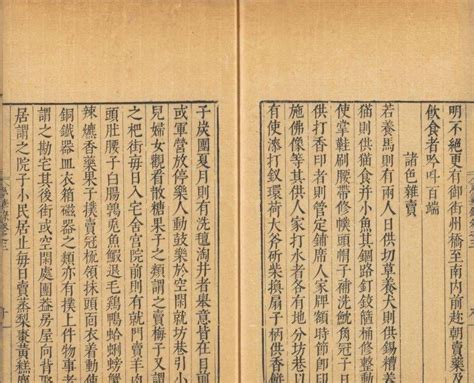 明不絕更有御街州橋至南内前趂朝賣
飲食者吟叫百端
諸色雜賣
若養馬則有兩人日供切草養犬則供餳糟
猫則供猫食并小魚其錮路釘鉸箍桶修整動
使掌鞋刷腰帶修幞頭帽子補洗魫角冠子
供打香印者則管定鋪席人家牌額時節即印
施佛像等其供人家打水者各有地分坊巷
有使漆打釵環荷大斧斫柴換扇子柄
子炭團夏月則有洗氊淘井者舉意皆在目前
或軍營放停樂人動鼓樂於空閑就坊巷引小
兒婦女觀看散糖果子之類謂之賣梅子又謂
之把街每日入宅舍宮院前則有就門賣羊肉
頭肚腰子白腸鶉兔魚鰕退毛雞鴨蛤蜊螃
辣爊香藥果子撲賣冠梳領抹頭面衣着動使
銅鐵器皿衣箱磁器之類亦有撲上件物事者
謂之勘宅其後街或空閑處團蓋房屋向背
居謂之院子小民居止每日賣蒸梨棗黃糕麋